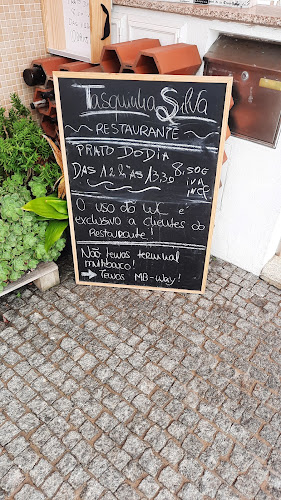 Tasquinha Silva
RESTAURANTE
PRATO DO DIA 8,50€
DAS 12h ÀS 13,30 IVA
INC
O USO DO WC É
EXCLUSIVO A CLIENTES DO
RESTAURANTE!
Não temos terminal
multibanco!
→ Temos MB-Way!